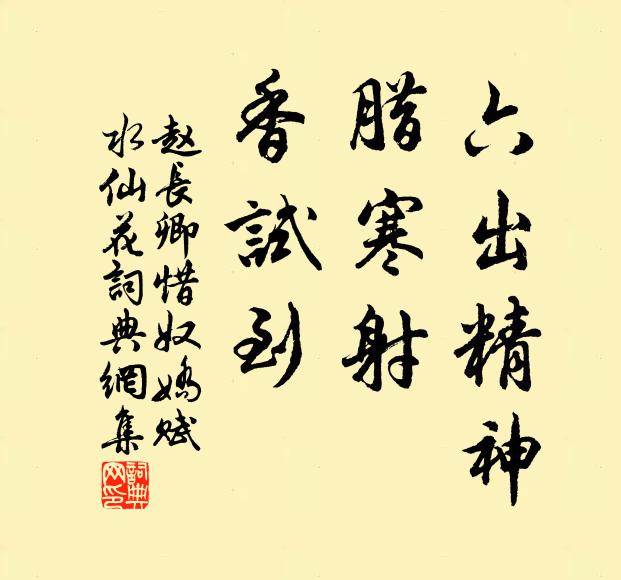 六出精神
腊寒射
香試到
赵長卿惜奴嬌赋
水仙花詞典網集
詞典
网印